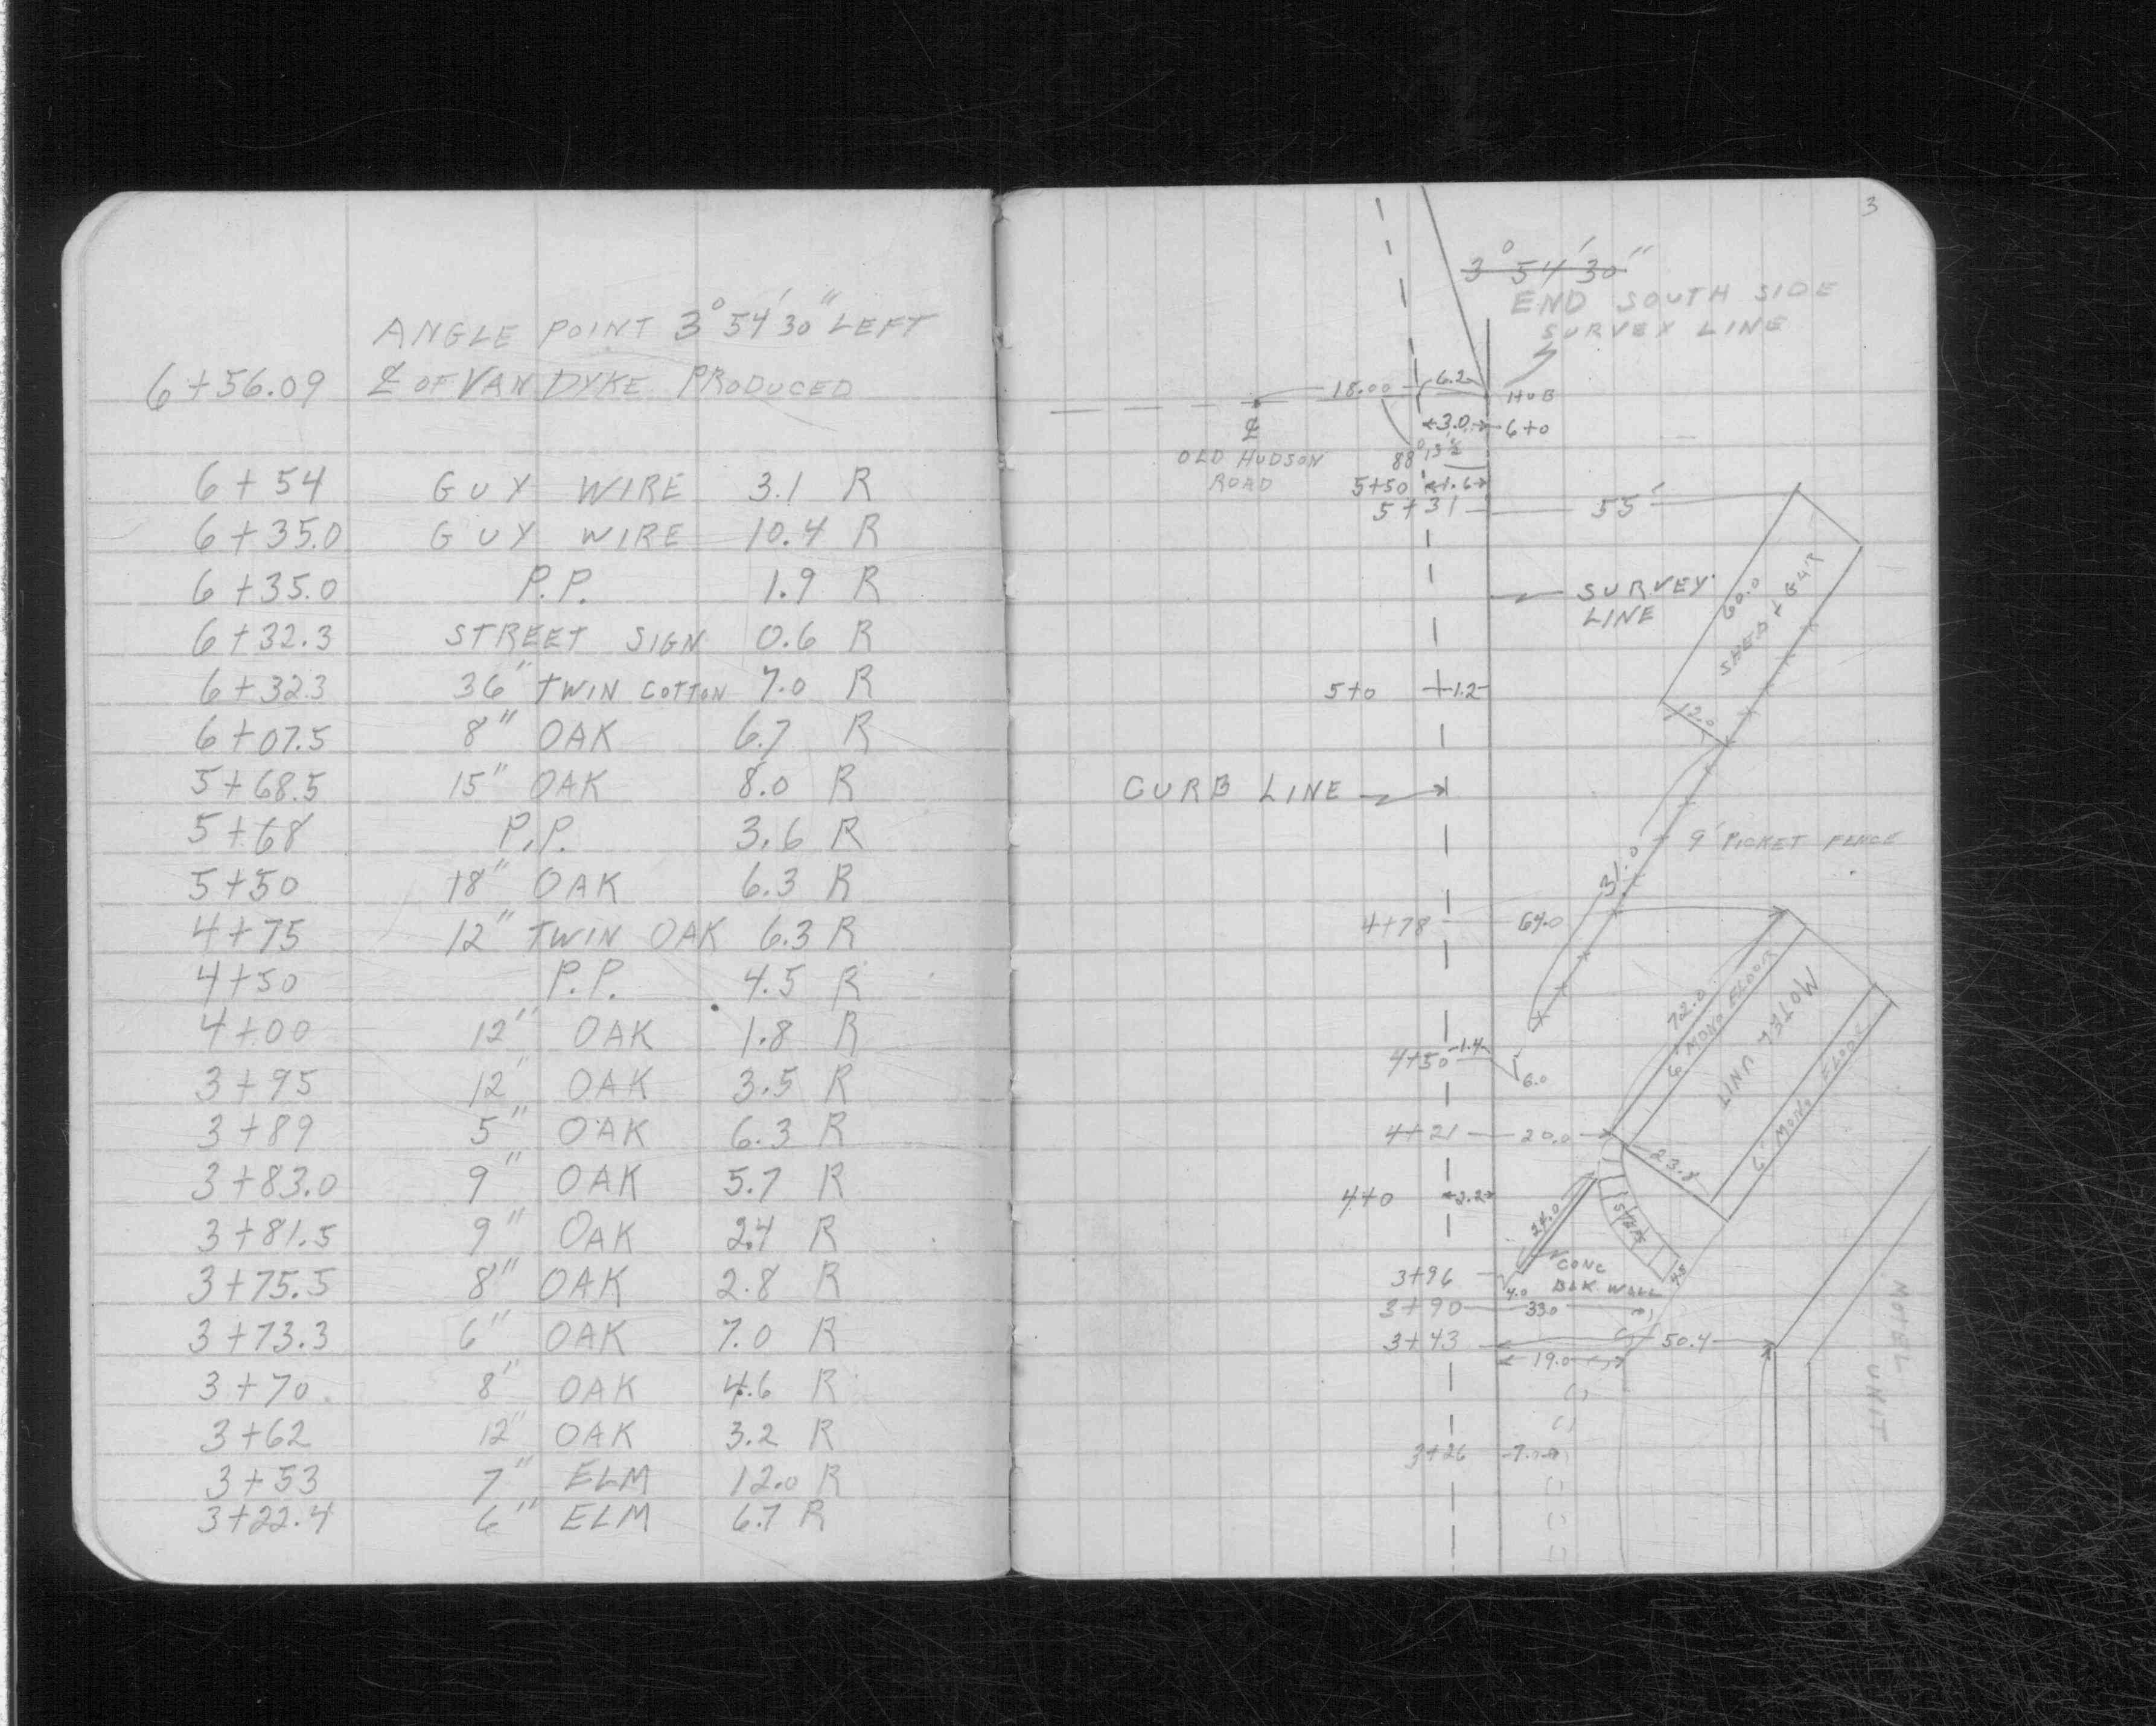 ANGLE POINT 3° 54' 30" LEFT
6+56.09 ℄ OF VAN DYKE PRODUCED
6+54 GUY WIRE 3.1 R
6+35.0 GUY WIRE 10.4 R
6+35.0 P.P. 1.9 R
6+32.3 STREET SIGN 0.6 R
6+32.3 36" TWIN COTTON 7.0 R
6+07.5 8" OAK 6.7 R
5+68.5 15" OAK 8.0 R
5+68 P.P. 3.6 R
5+50 18" OAK 6.3 R
4+75 12" TWIN OAK 6.3 R
4+50 P.P. 4.5 R
4+00 12" OAK 1.8 R
3+95 12" OAK 3.5 R
3+89 5" OAK 6.3 R
3+83.0 9" OAK 5.7 R
3+81.5 9" OAK 2.4 R
3+75.5 8" OAK 2.8 R
3+73.3 6" OAK 7.0 R
3+70 8" OAK 4.6 R
3+62 12" OAK 3.2 R
3+53 7" ELM 12.0 R
3+22.4 6" ELM 6.7 R
3
3° 54' 30"
END SOUTH SIDE
SURVEY LINE
18.00 6.2
HUB
℄
3.0 6+0
OLD HUDSON
ROAD
5+50 1.6
5+31 55'
SURVEY
LINE
60.0
5+0 1.2
12.0
CURB LINE
9' PICKET FENCE
31.0
4+78 64.0
72.0
6' MONO FLOOR
MOTEL UNIT
6' MONO FLOOR
4+50 1.4
6.0
4+21 20.0
23.8
4+0 2.2
24.0
STEPS
CONC
BLK WALL
4.5
3+96 4.0
3+90 33.0
3+43 50.4
19.0
MOTEL UNIT
3+26 7.0